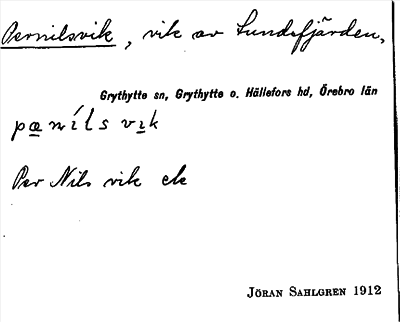 Pernilsvik, vik av Sundsfjärden,
Grythytte sn, Grythytte o. Hällefors hd, Örebro län
pænils vɩk
Per Nils vik etc
JÖRAN SAHLGREN 1912